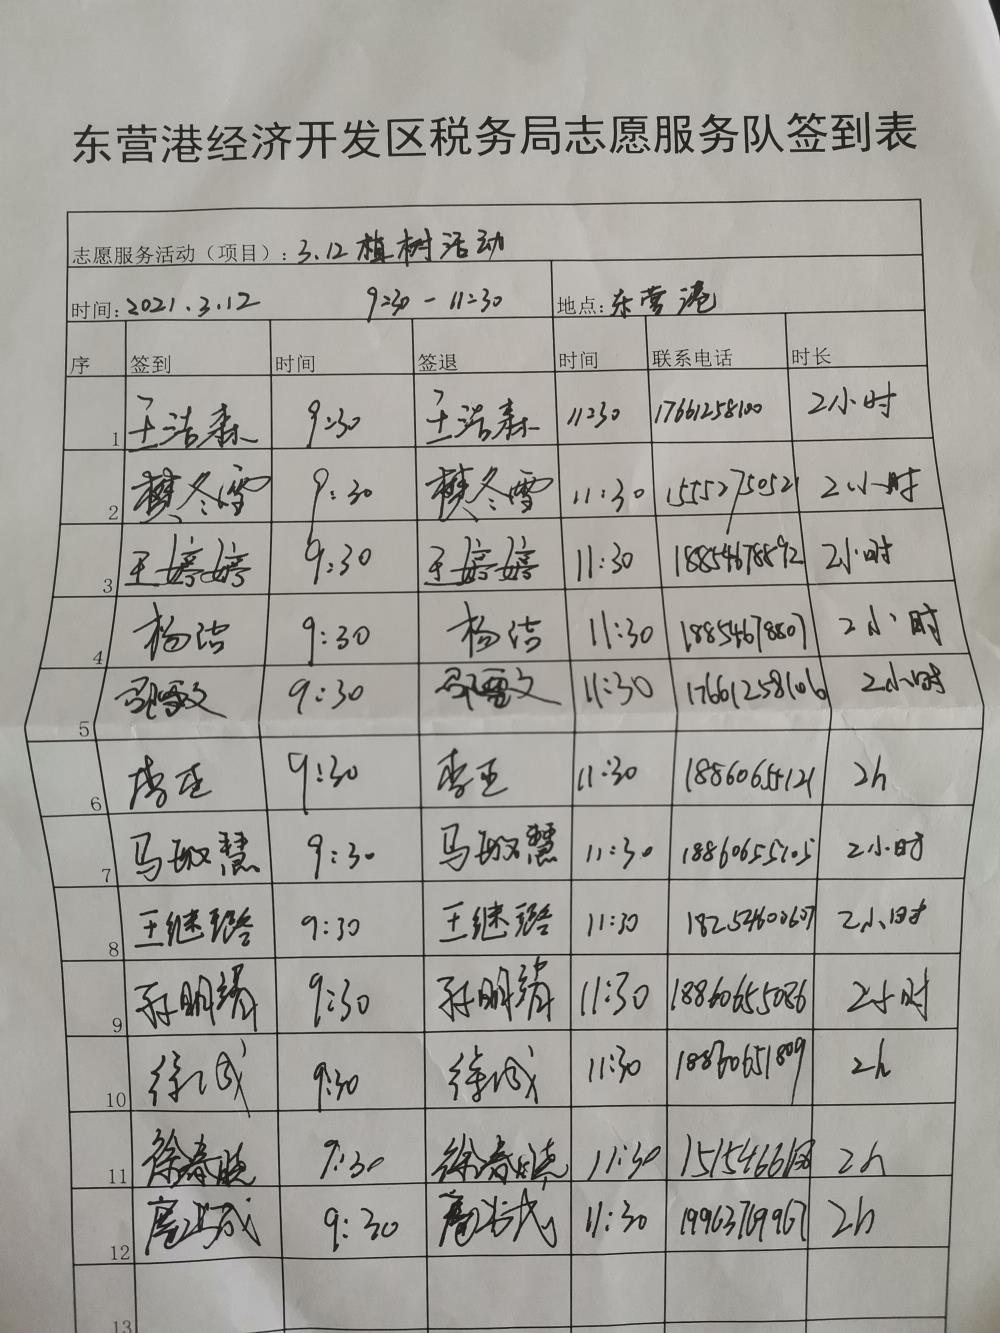 东营港经济开发区税务局志愿服务队签到表
志愿服务活动（项目）：3.12植树活动
时间：2021.3.12 9:30-11:30 地点：东营港
序 签到 时间 签退 时间 联系电话 时长
1 王浩森 9:30 王浩森 11:30 17661258100 2小时
2 樊冬雪 9:30 樊冬雪 11:30 15552750521 2小时
3 王婷婷 9:30 王婷婷 11:30 18854678892 2小时
4 杨洁 9:30 杨洁 11:30 18854678807 2小时
5 9:30 11:30 17661258106 2小时
6 李正 9:30 李正 11:30 18860655121 2h
7 马敏慧 9:30 马敏慧 11:30 18860655705 2小时
8 王继璐 9:30 王继璐 11:30 18254600607 2小时
9 孙明靖 9:30 孙明靖 11:30 18860655086 2小时
10 徐成 9:30 徐成 11:30 18860651809 2h
11 徐春晓 9:30 徐春晓 11:30 2h
12 9:30 11:30 19963769967 2h
13